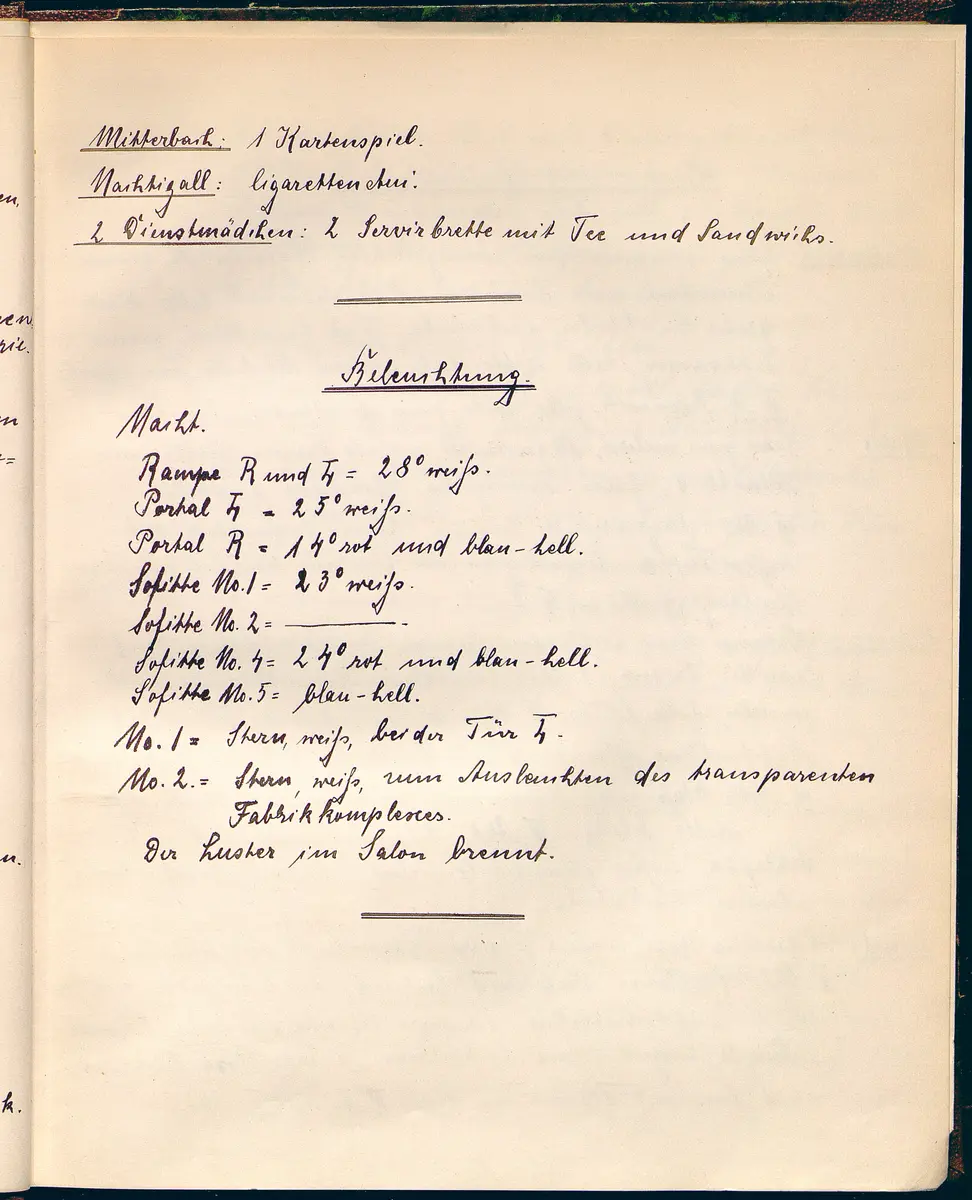 Mitterbach: 1 Kartenspiel.
Nachtigall: Cigaretten etui.
2 Dienstmädchen: 2 Servirbrette mit Tee und Sandwichs.
Beleuchtung.
Nacht.
Rampe R und L = 28° weiß.
Portal L = 25° weiß.
Portal R = 14° rot und blau-hell.
Sofitte No. 1 = 23° weiß.
Sofitte No. 2 = ———-
Sofitte No. 4 = 24° rot und blau-hell.
Sofitte No. 5 = blau-hell.
No. 1 = Stern, weiß, bei der Tür L.
No. 2. = Stern, weiß, zum Ausleuchten des transparenten
Fabrikkomplexes.
Der Luster im Salon brennt.